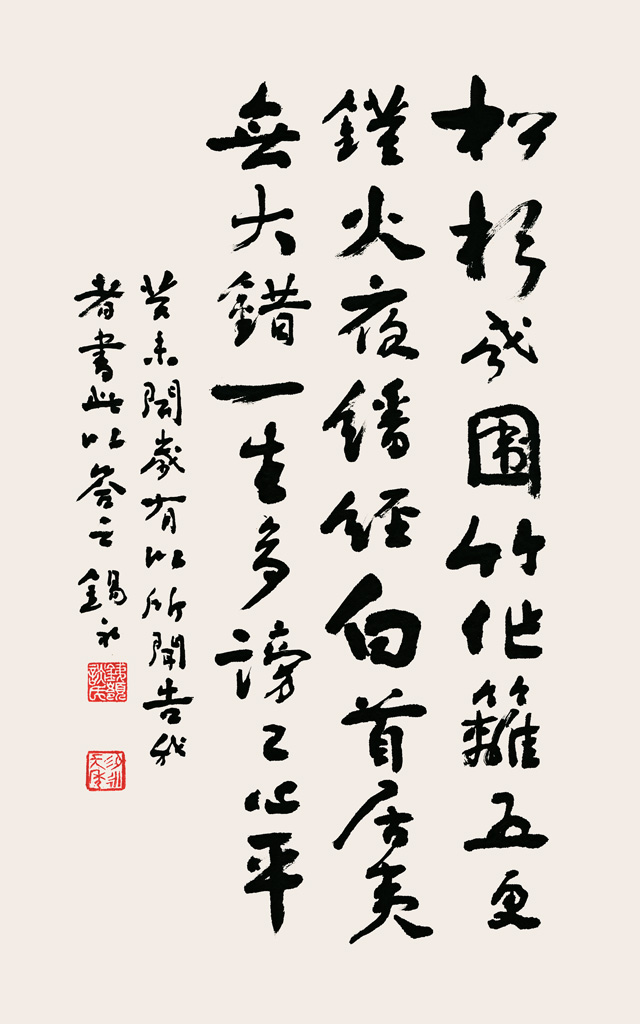 松杉成圍竹作籬五更
鐙火夜繙經白首居夷
無大錯一生多謗已心平
昔未聞歲有以所聞告我
者書此以答之 錫永